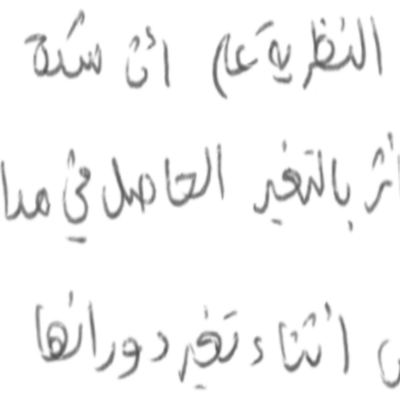 النظرية على ان شدة
بالتغير الحاصل في
اثناء تغير دورانها